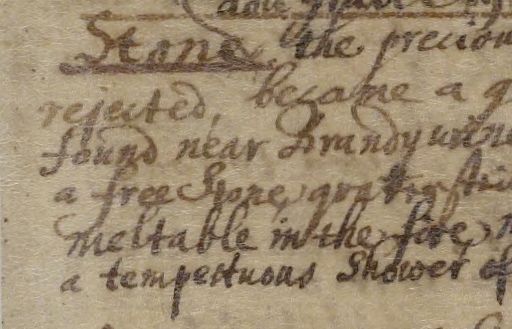 Stone, the preciou
rejected, became a g
found near Brandywine
a free Stone,
meltable in the fire,
a tempestuous Shower of